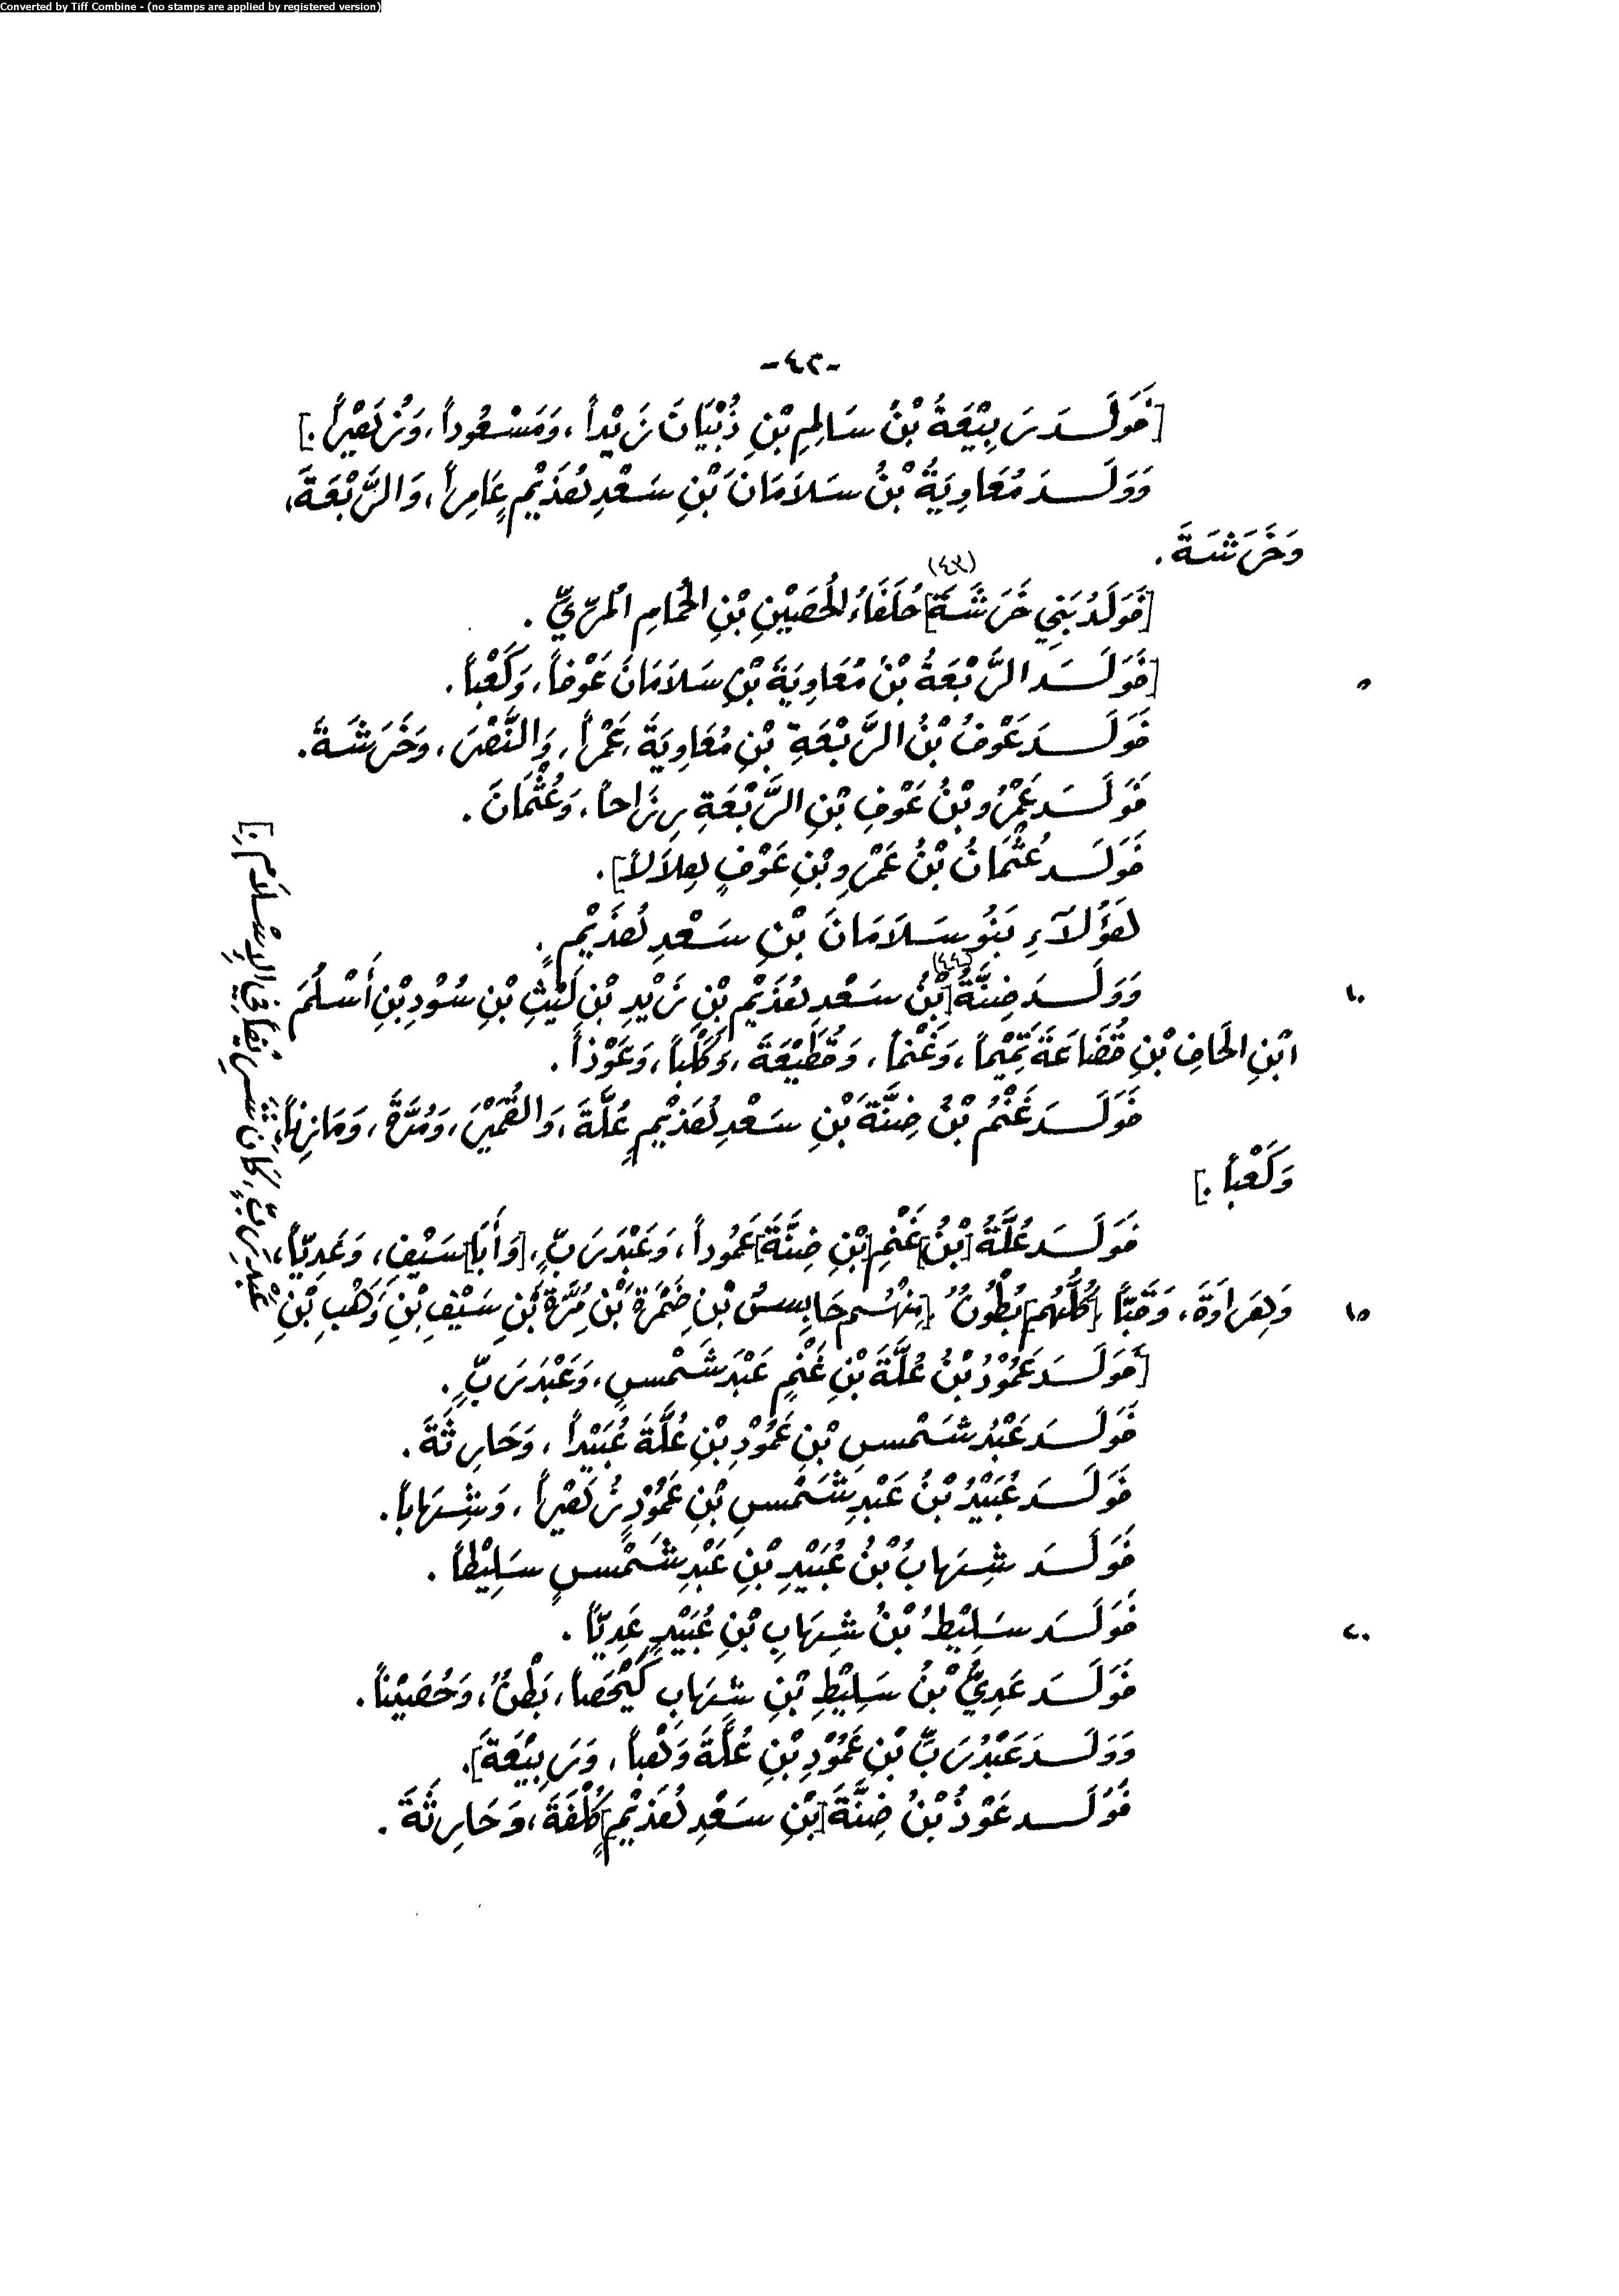 Converted by Tiff Combine - (no stamps are applied by registered version)
-٤٢-
[فَوَلَدَ رَبِيْعَةُ بْنُ سَالِمِ بْنِ ذُبْيَانَ زَيْداً، وَمَسْعُوداً، وَزُهَيْراً.]
وَوَلَدَ مُعَاوِيَةُ بْنُ سَلاَمَانَ بْنِ سَعْدِ هُذَيْمٍ عَامِراً، وَالرَّبْعَةَ،
وَخَرَشَةَ.
[فَوَلَدُ بَنِي خَرَشَةَ] (٤٣) حُلَفَاءُ الحُصَيْنِ بْنِ الحُمَامِ المُرِّيِّ.
[فَوَلَدَ الرَّبْعَةُ بْنُ مُعَاوِيَةَ بْنِ سَلاَمَانَ عَوْفاً، وَكَعْباً. ٥
فَوَلَدَ عَوْفُ بْنُ الرَّبْعَةِ بْنِ مُعَاوِيَةَ، عَمْراً، وَالنَّضْرَ، وَخَرَشَةَ.
فَوَلَدَ عَمْرُو بْنُ عَوْفِ بْنِ الرَّبْعَةِ رِزَاحاً، وَعُثْمَانَ.
فَوَلَدَ عُثْمَانُ بْنُ عَمْرِو بْنِ عَوْفٍ هِلاَلاً].
هَؤُلاَءِ بَنُو سَلاَمَانَ بْنِ سَعْدِ هُذَيْمٍ.
وَوَلَدَ ضِنَّةُ (٤٤) [بْنُ سَعْدِ هُذَيْمِ بْنِ زَيْدِ بْنِ لَيْثِ بْنِ سُوْدِ بْنِ أَسْلُمَ ١٠
ابْنِ الحَافِ بْنِ قُضَاعَةَ تَمِيْماً، وَغَنْماً، وَقُطَيْعَةَ، وَكَلْباً، وَعَوْذاً.
فَوَلَدَ غَنْمُ بْنُ ضِنَّةَ بْنِ سَعْدِ هُذَيْمٍ عُلَّةَ، وَالقُمَيْرَ، وَمُرَّةَ، وَمَازِناً،
وَكَعْباً.]
فَوَلَدَ عُلَّةُ [بْنُ] غَنْمِ [بْنِ ضِنَّةَ] عَمُوداً، وَعَبْدَ رَبٍّ، [وَأَبَا] سَيْفٍ، وَعَدِيّاً،
وَهِرَاوَةَ، وَقَبّاً [كُلُّهُم] بُطُونٌ [مِنْهُم حَابِسُ بْنُ ضَمْرَةَ بْنِ مُرَّةَ بْنِ سَيْفِ بْنِ وَهْبِ بْنِ ١٥
عَبْدِ رَبٍّ، كَانَ شَرِيْفاً فِي الإِسْلاَمِ.]
[فَوَلَدَ عَمُوْدُ بْنُ عُلَّةَ بْنِ غَنْمٍ عَبْدَ شَمْسٍ، وَعَبْدَ رَبٍّ.
فَوَلَدَ عَبْدُ شَمْسِ بْنِ عَمُوْدِ بْنِ عُلَّةَ عُبَيْداً، وَحَارِثَةَ.
فَوَلَدَ عُبَيْدُ بْنُ عَبْدِ شَمْسِ بْنِ عَمُوْدٍ زُهَيْراً، وَشِهَاباً.
فَوَلَدَ شِهَابُ بْنُ عُبَيْدِ بْنِ عَبْدِ شَمْسٍ سَلِيْطاً.
فَوَلَدَ سَلِيْطُ بْنُ شِهَابِ بْنِ عُبَيْدٍ عَدِيّاً. ٢٠
فَوَلَدَ عَدِيُّ بْنُ سَلِيْطِ بْنِ شِهَابٍ بَطْنٌ، وَحُصَيْناً.
وَوَلَدَ عَبْدُ رَبِّ بْنِ عَمُوْدِ بْنِ عُلَّةَ وَهْباً، وَرَبِيْعَةَ].
فَوَلَدَ عَوْذُ بْنُ ضِنَّةَ [بْنِ سَعْدِ هُذَيْمٍ] كُلْفَةَ، وَحَارِثَةَ.